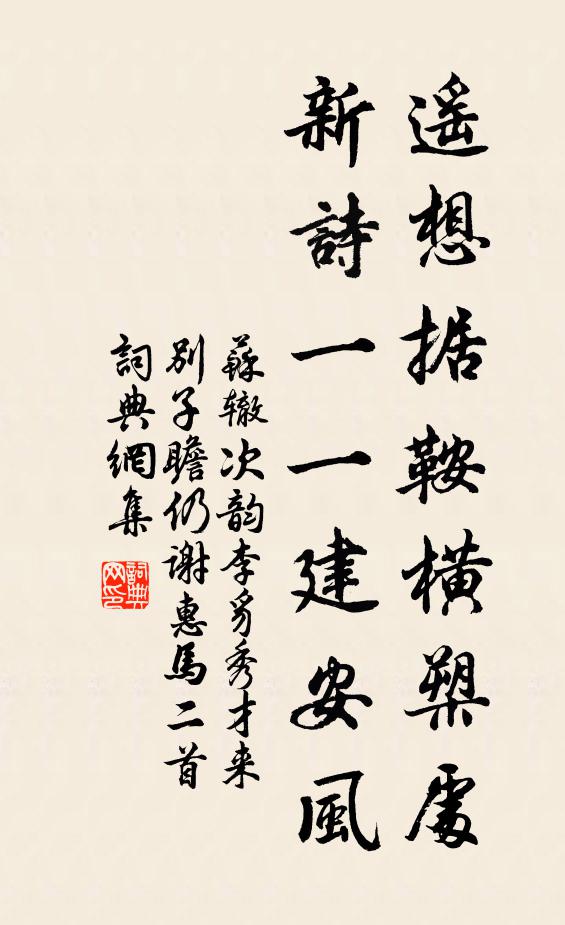 遥想据鞍橫槊處
新詩一一建安風
蘇辙次韵李豸秀才来
别子瞻仍谢惠馬二首
詞典網集
詞典網印